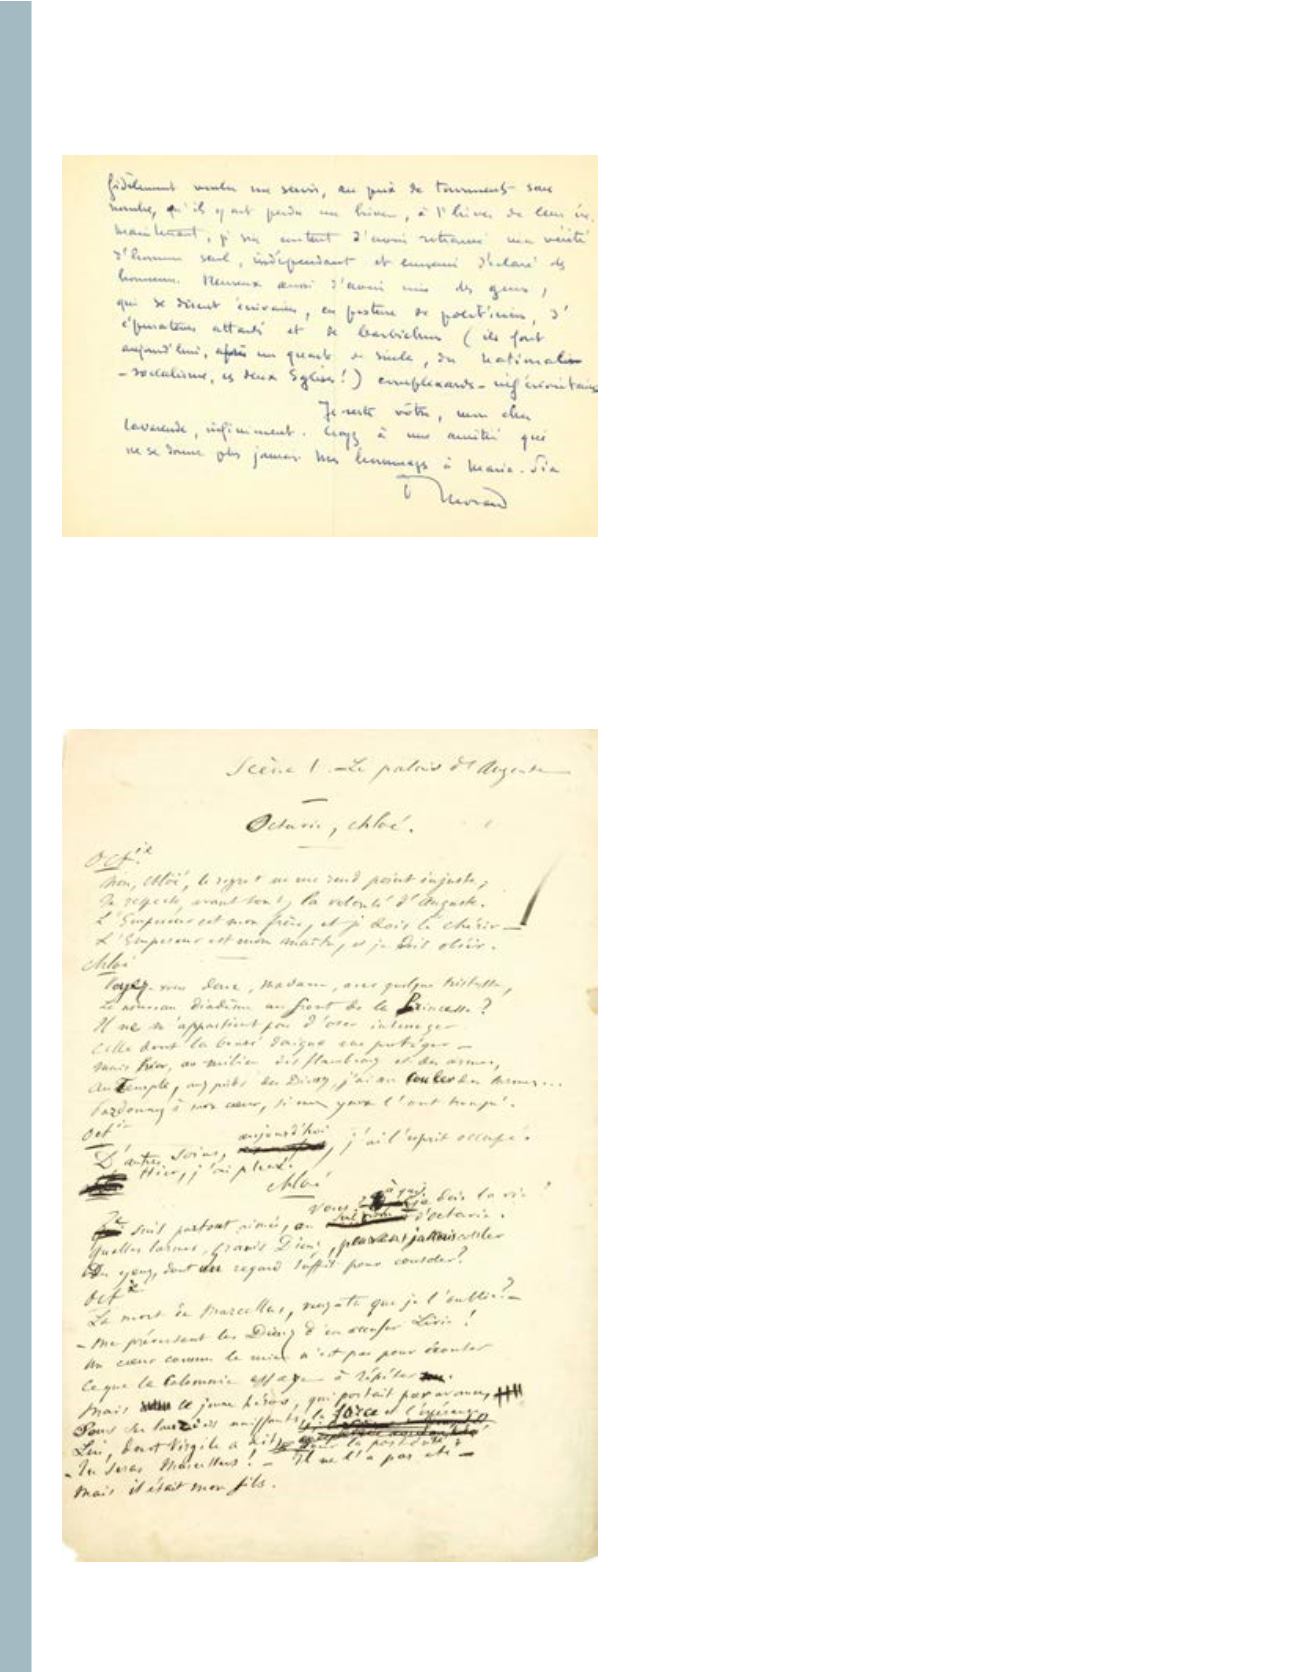 fidèlement voulu me servir, au prix de tourments sans
nombre, qu'ils y ont perdu un hiver, à l'hiver de leur vie.
Maintenant, je suis content d'avoir retrouvé ma vérité
d'homme seul, indépendant et ennemi déclaré des
honneurs. Heureux aussi d'avoir mis des gens,
qui se disent écrivains, en posture de politiciens, d'
épurateurs attardés et de barbichus (ils font
aujourd'hui, après un quart de siècle, du national
-socialisme, ces deux Eglises !)
Je reste vôtre, mon cher
Lavarende, infiniment. Croyez à une amitié qui
ne se donne plus jamais. Mes hommages à Maria-Pia
P Morand
Scène 1. - Le palais d'Auguste
Octavie, Chloé.
Oct.ie
Non, Chloé, le regret ne me rend point injuste ;
Je respecte, avant tout, la volonté d'Auguste.
L'Empereur est mon frère, et je dois le chérir —
L'Empereur est mon maître, et je dois obéir.
Chloé
Voyez-vous donc, Madame, avec quelque tristesse,
Le nouveau diadême au front de la Princesse ?
Il ne m'appartient pas d'oser interroger
Celle dont la bonté daigne me protéger —
Mais hier, au milieu des flambeaux et des armes,
Au Temple, aux pieds des Dieux, j'ai vu couler des larmes...
Pardonnez à mon cœur, si mes yeux l'ont trompé.
Oct.ie
D'autres soins, aujourd'hui, j'ai l'esprit occupé.
Hier, j'ai pleuré.
Chloé
Vous, à qui je dois la vie ?
suis partout aimée, au d'Octavie.
Quelles larmes, Grands Dieux, peuvent jamais couler
Des yeux, dont un regard suffit pour consoler ?
Oct.ie
La mort de Marcellus, veux-tu que je l'oublie ? —
- Me préservent les Dieux d'en accuser Livie !
Un cœur comme le mien n'est pas pour écouter
Ce que la Calomnie essaye à répéter.
Mais ce jeune héros, qui portait par avance,
Pour ses lauriers naissants, la force et l'espérance,
Lui, dont Virgile a dit, pour la postérité :
- Tu seras Marcellus ! - Il ne l'a pas été —
Mais il était mon fils.